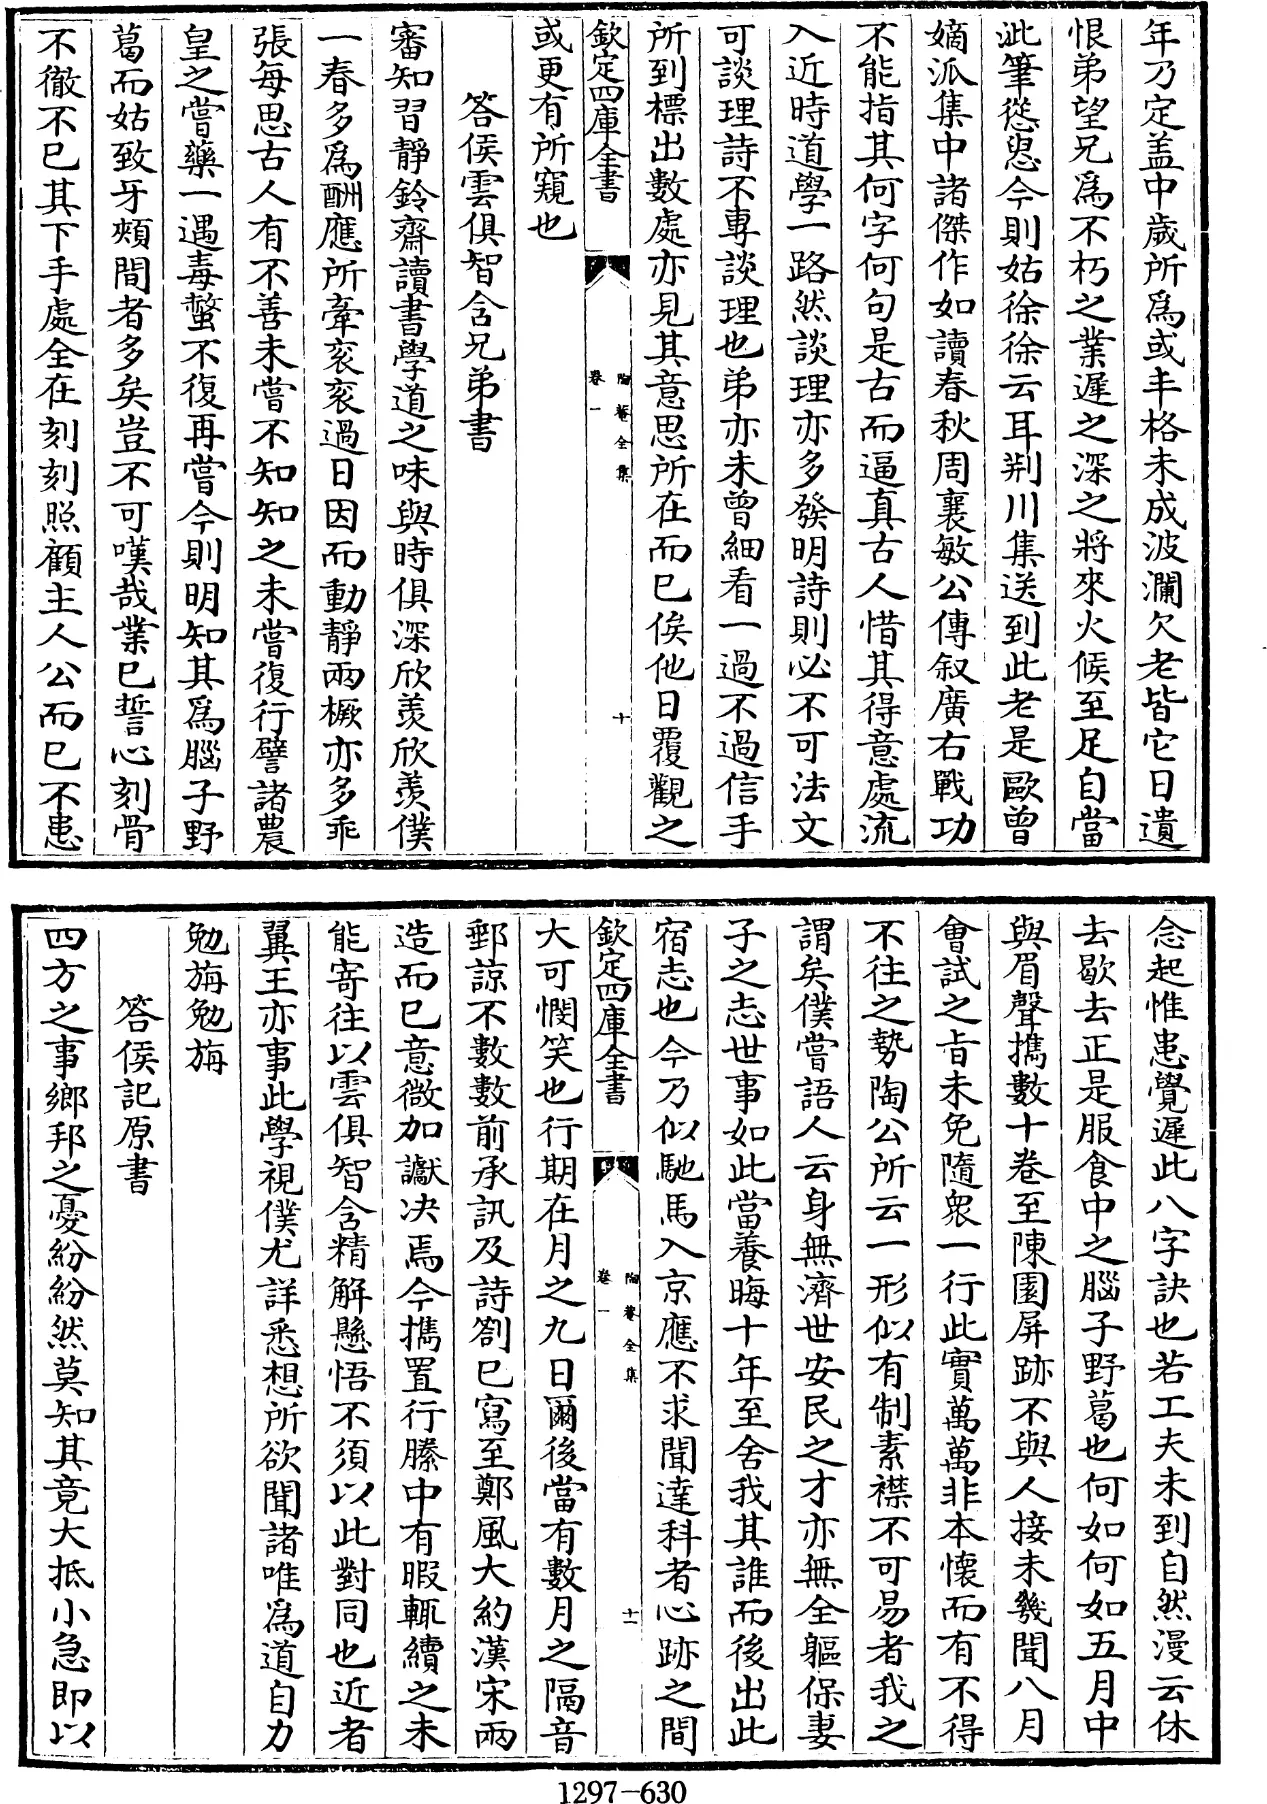 年乃定盖中歲所爲或丰格未成波瀾欠老皆它日遺
恨弟望兄爲不朽之業遲之深之將來火候至足自當
泚筆慫恿今則姑徐徐云耳荆川集送到此老是歐曾
嫡派集中諸傑作如讀春秋周襄敏公傳叙廣右戰功
不能指其何字何句是古而逼真古人惜其得意處流
入近時道學一路然談理亦多發明詩則必不可法文
可談理詩不専談理也弟亦未曾細看一過不過信手
所到標出數處亦見其意思所在而已俟他日覆觀之
欽定四庫全書
陶菴全集
卷一
十
或更有所窺也
答侯雲俱智含兄弟書
審知習靜鈴齋讀書學道之味與時俱深欣羨欣羨僕
一春多爲酬應所牽衮衮過日因而動靜兩橛亦多乖
張每思古人有不善未嘗不知知之未嘗復行譬諸農
皇之嘗藥一遇毒螫不復再嘗今則明知其爲腦子野
葛而姑致牙頰間者多矣豈不可嘆哉業已誓心刻骨
不徹不已其下手處全在刻刻照顧主人公而已不患
念起惟患覺遲此八字訣也若工夫未到自然漫云休
去歇去正是服食中之腦子野葛也何如何如五月中
與眉聲攜數十卷至陳園屏跡不與人接未幾聞八月
會試之㫖未免隨衆一行此實萬萬非本懷而有不得
不往之勢陶公所云一形似有制素襟不可易者我之
謂矣僕嘗語人云身無濟世安民之才亦無全軀保妻
子之志世事如此當養晦十年至舍我其誰而後出此
宿志也今乃似馳馬入京應不求聞達科者心跡之間
欽定四庫全書
陶菴全集
卷一
十一
大可憫笑也行期在月之九日爾後當有數月之隔音
郵諒不數數前承訊及詩劄已寫至鄭風大約漢宋兩
造而已意微加讞决焉今攜置行縢中有暇輒續之未
能寄往以雲俱智含精解懸悟不須以此對同也近者
翼王亦事此學視僕尤詳悉想所欲聞諸唯爲道自力
勉旃勉旃
答侯記原書
四方之事鄉邦之憂紛紛然莫知其竟大抵小急即以
1297-630